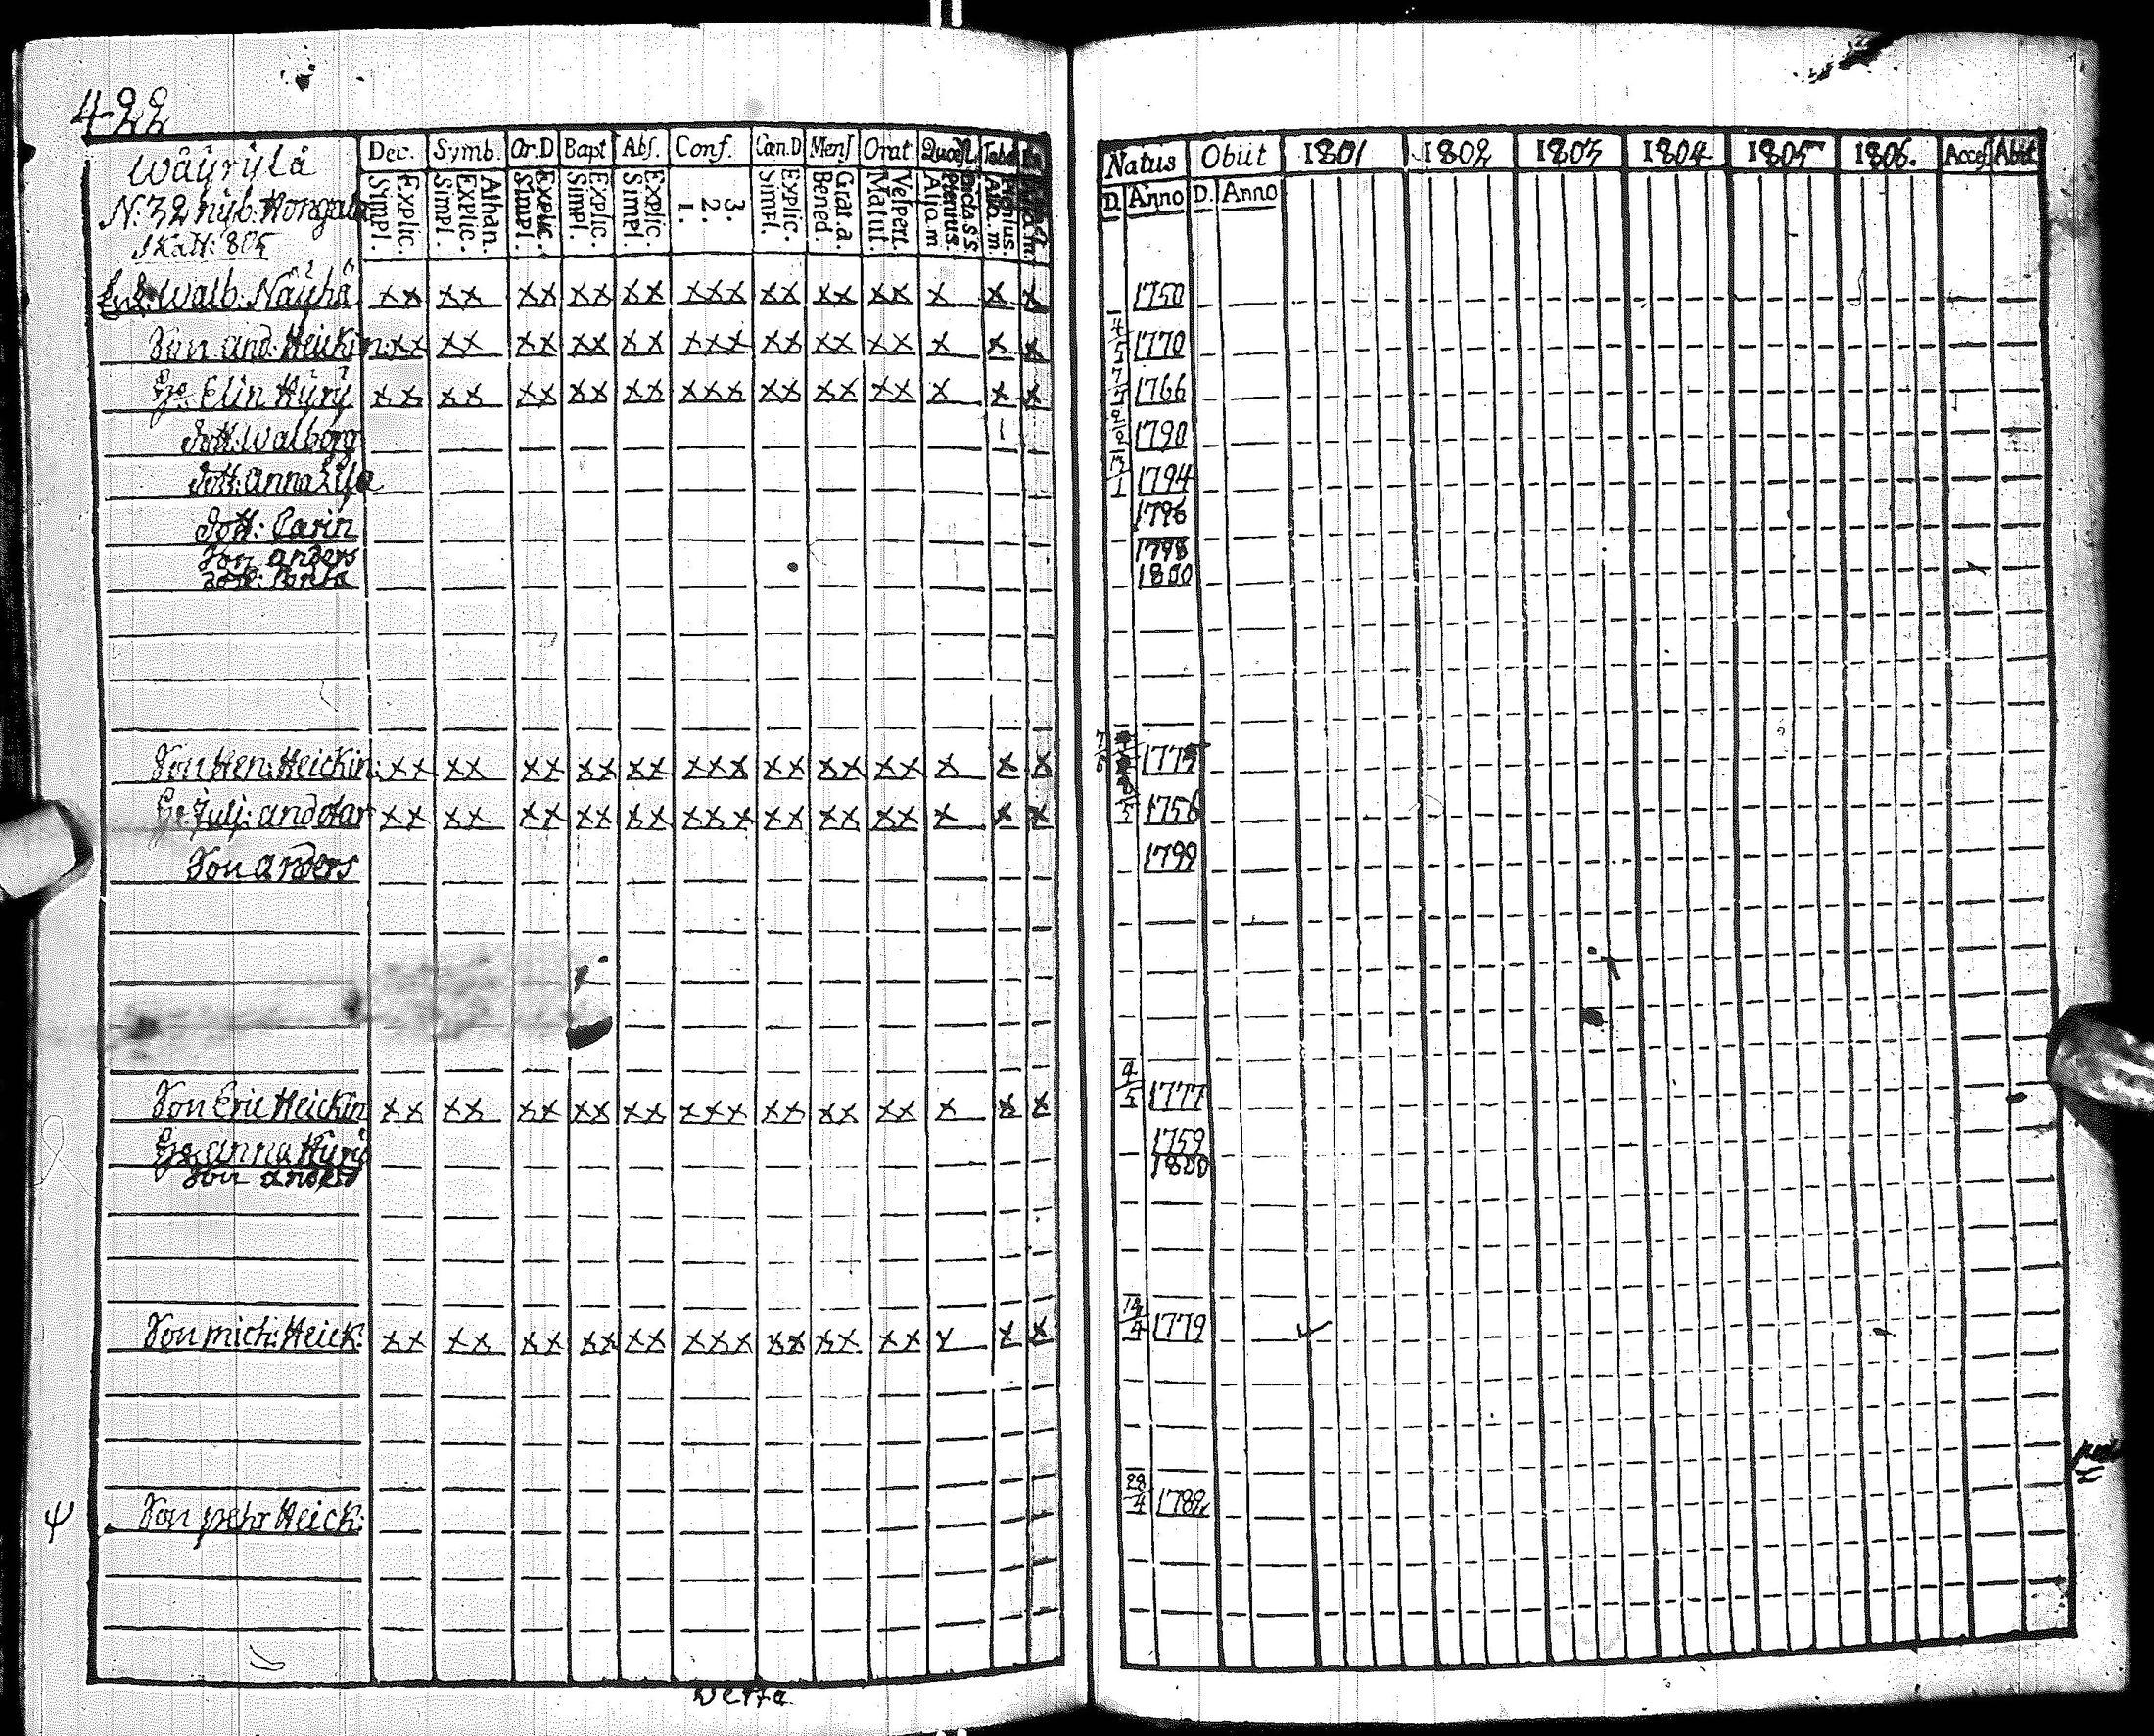 422
Wäyrylä
N: 32 nyb. Hongala
Skatt: 805
Dec. Symb. Or.D Bapt Abs. Conf. Can.D Mens Orat. Quæst Tabel
Simpl. Explic. Simpl. Explic. Athan. Simpl. Explic. Simpl. Explic. Simpl. Explic. 1. 2. 3. Simpl. Explic. Bened. Grat. a. Matut. Vespert. Alia m. Plenius. Dicta S.S. Alia. m. Plenius.
Natus Obiit 1801 1802 1803 1804 1805 1806. Access Abiit
D. Anno D. Anno
Walb. Näyhä xx xx xx xx xx xxx xx xx xx x x x 1750
Son And: Heickin: xx xx xx xx xx xxx xx xx xx x x x 4/5 1770
H. Elin Hyry xx xx xx xx xx xxx xx xx xx x x x 1766
Dott. Walborg 1 1790
Dott. Anna Lisa 13/1 1794
Dott: Carin 1796
Son Anders 1798
Dott: 1800
Son Hen: Heickin: xx xx xx xx xx xxx xx xx xx x x x 1775
H. Juli: Anddtar xx xx xx xx xx xxx xx xx xx x x x 1756
Son Anders 1799
Son Eric Heickin xx xx xx xx xx xxx xx xx xx x x x 4/5 1777
H. Anna Hyry 1759
Son Anders 1800
Son Mich: Heick: xx xx xx xx xx xxx xx xx xx x x x 1779
Son Pehr Heick: 28/4 1782
Verte